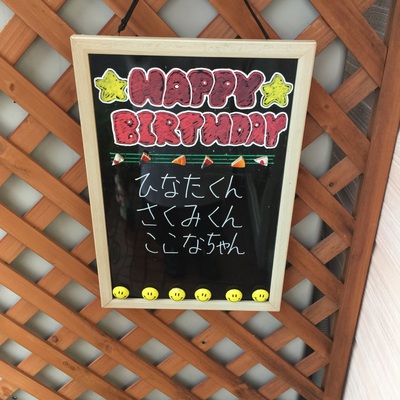 HAPPY
BIRTHDAY
ひなたくん
さくみくん
ここなちゃん